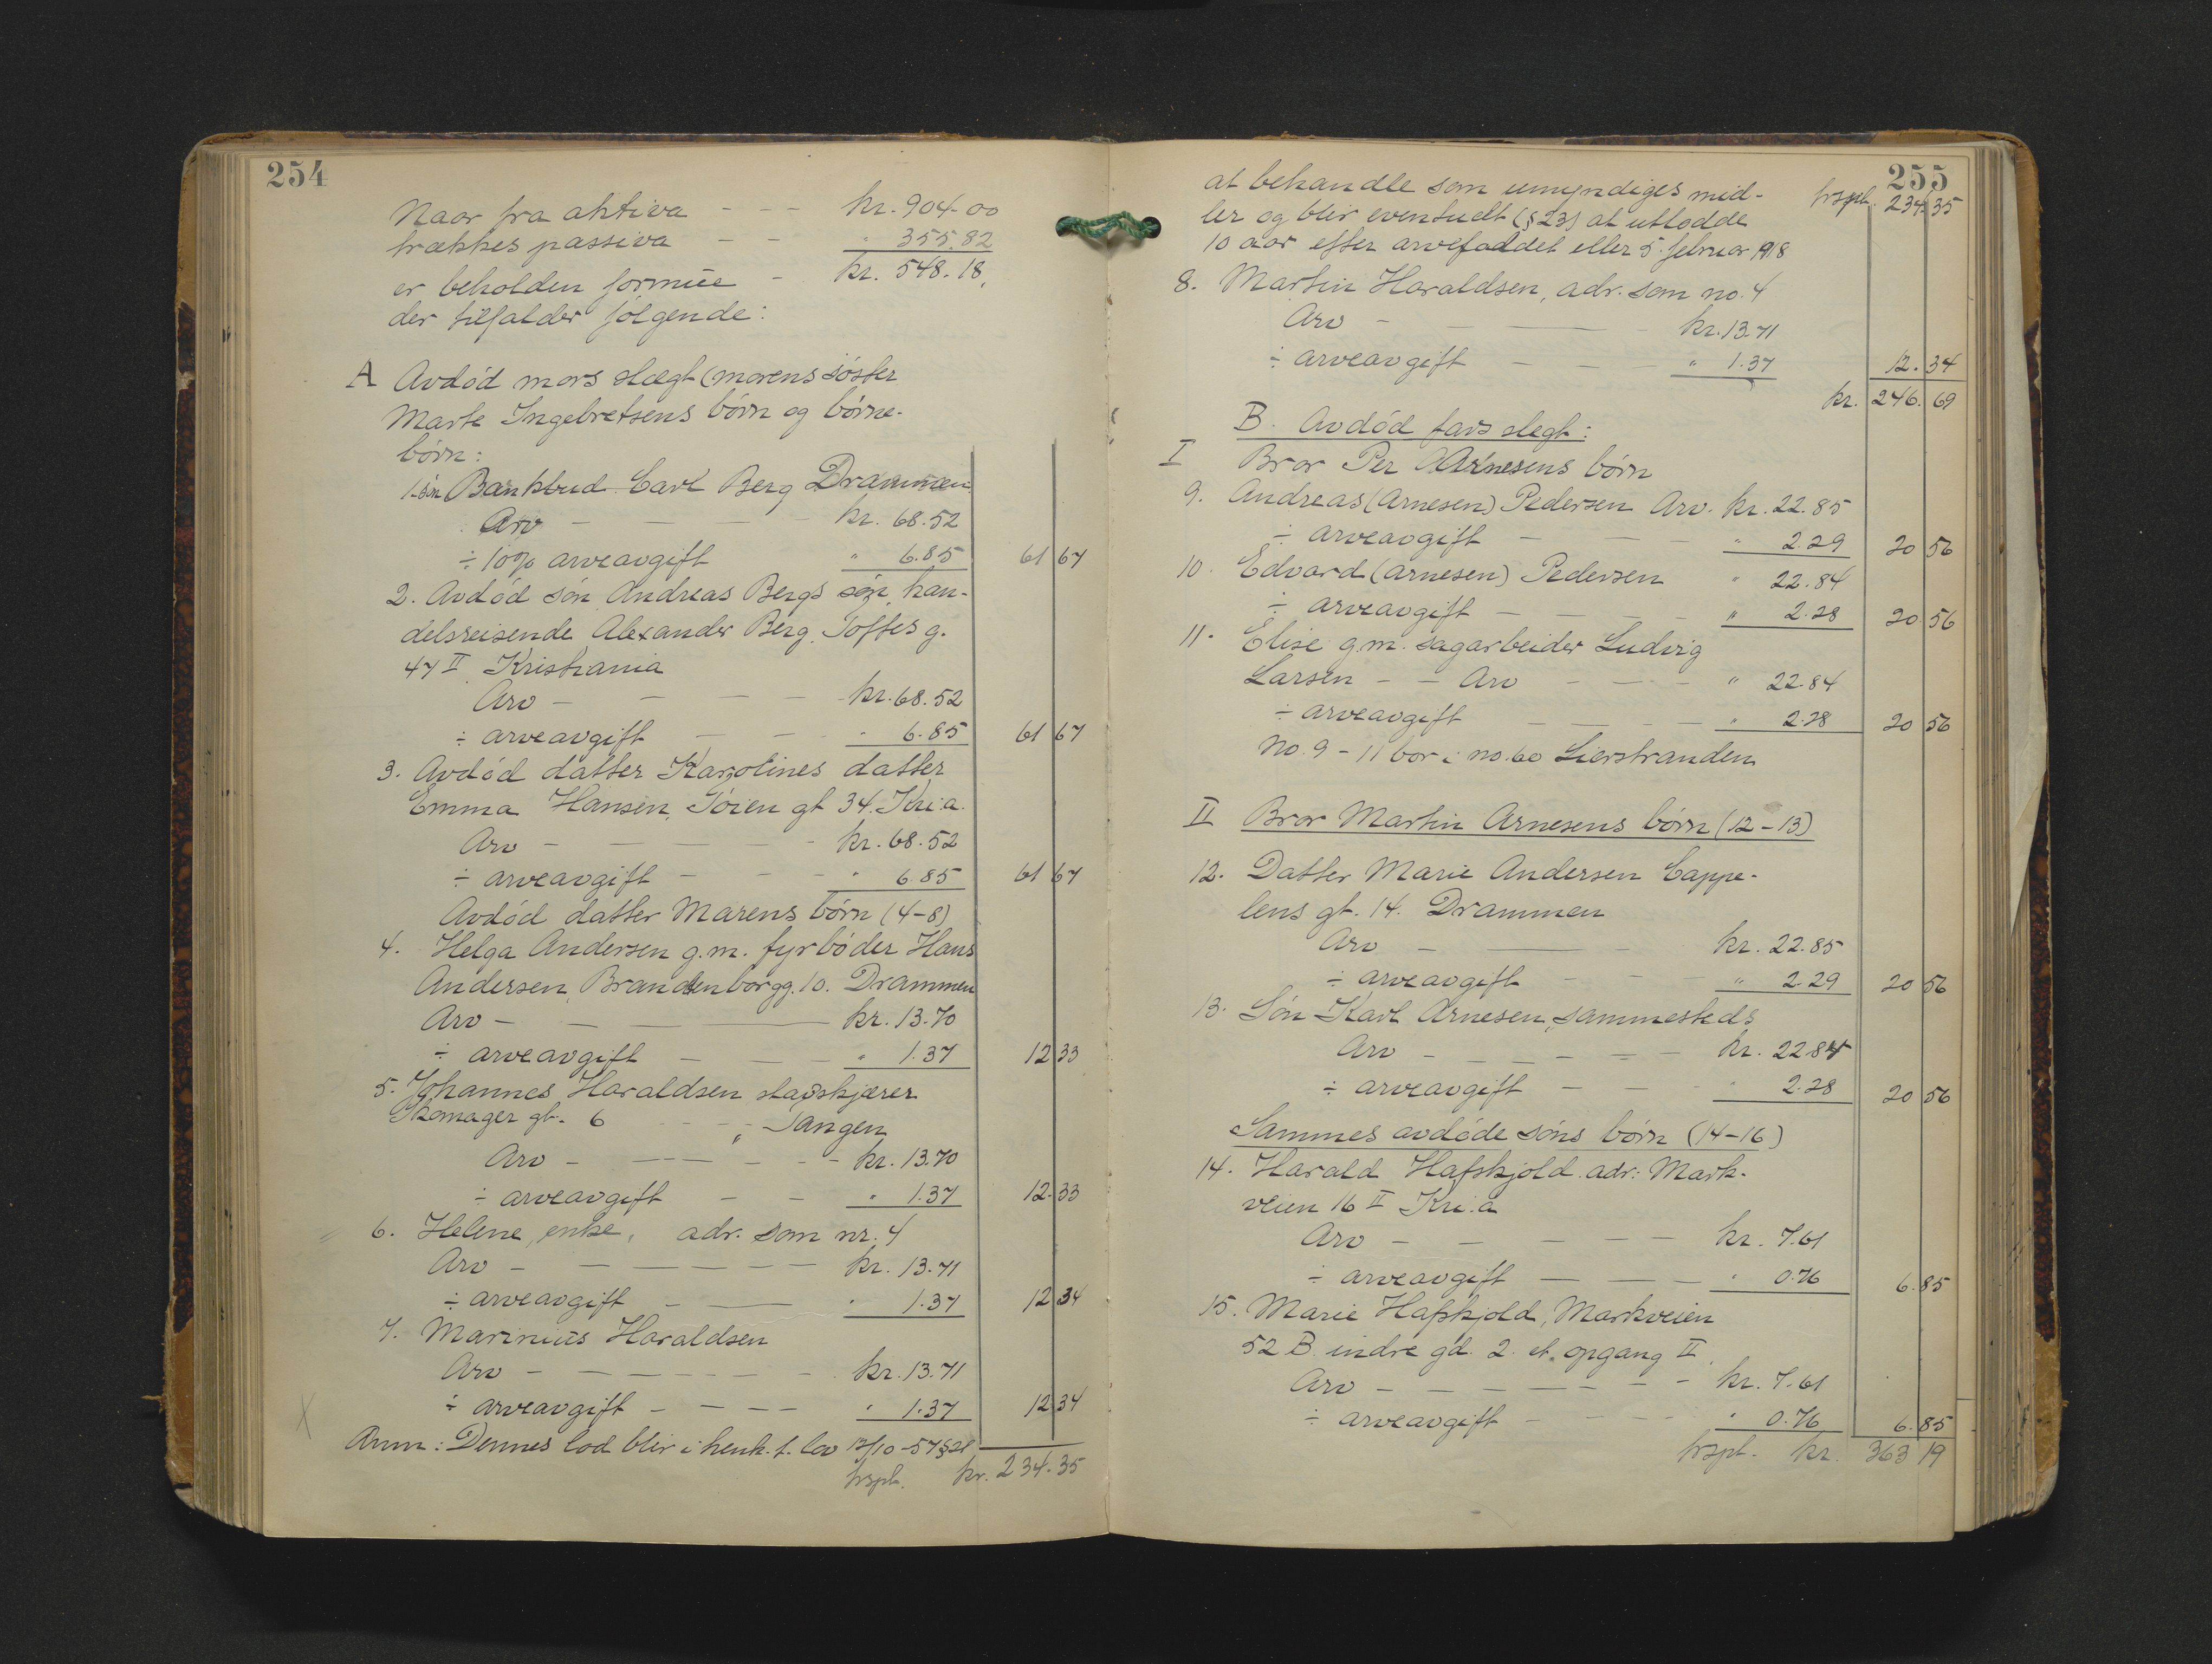 254
Naar fra aktiva - - - kr. 904.00
trækkes passiva - - " 355.82
er beholden formue - kr. 548.18,
der tilfalder følgende:
A Avdød mors slegt (morens søster
Marte Ingebretsens børn og børne-
børn:
1. søn Bankbud Carl Berg Drammen
Arv - - - kr. 68.52
÷ 10% arveavgift " 6.85 61 67
2. Avdød søn Andreas Bergs søn, han-
delsreisende Alexander Berg, Toftes g.
47 II Kristiania
Arv - - - - kr. 68.52
÷ arveavgift - - " 6.85 61 67
3. Avdød datter Karolines datter
Emma Hansen, Tøien gt 34. Kri.a.
Arv - - - - - kr. 68.52
÷ arveavgift - - - " 6.85 61 67
Avdød datter Marens børn (4-8)
4. Helga Andersen g.m. fyrbøder Hans
Andersen, Brandenborgg. 10. Drammen
Arv - - - - kr. 13.70
÷ arveavgift - - - " 1.37 12 33
5. Johannes Haraldsen stavskjærer
Skomager gt. 6 - - - " Tangen
Arv - - - - - - kr. 13.70
÷ arveavgift - - " 1.37 12. 33
6. Helene, enke, adr. som nr. 4
Arv - - - - - - kr. 13.71
÷ arveavgift - - " 1.37 12 34
7. Marinius Haraldsen
Arv - - - - - - - kr. 13.71
÷ arveavgift - - - - " 1.37 12 34
Anm: Dennes lod blir i henh. t. lov 12/10-57 § 21
trspt. kr. 234.35
255
at behandle som umyndiges mid- trspt. 234.35
ler og blir eventuelt (§ 23) at utlodde
10 aar efter arvefaldet eller 5. februar 1918
8. Martin Haraldsen, adr. som no. 4
Arv - - - - kr. 13.71
÷ arveavgift - - - " 1.37 12. 34
kr. 246. 69
B. Avdød fars slegt:
I Bror Per Arnesens børn
9. Andreas (Arnesen) Pedersen Arv. kr. 22.85
÷ arveavgift - - - " 2.29 20 56
10. Edvard (Arnesen) Pedersen " 22.84
÷ arveavgift - - - " 2.28 20 56
11. Elise g.m. sagarbeider Ludvig
Larsen - - Arv - - - " 22.84
÷ arveavgift - - - - " 2.28 20 56
No. 9 - 11 bor i no. 60 Lierstranden
II Bror Martin Arnesens børn (12-13)
12. Datter Marie Andersen Cappe-
lens gt. 14. Drammen
Arv - - - kr. 22.85
÷ arveavgift - - " 2.29 20 56
13. Søn Karl Arnesen, sammesteds
Arv - - - - - - kr. 22.84
÷ arveavgift - - " 2.28 20 56
Sammes avdøde søns børn (14-16)
14. Harald Hafskjold adr: Mark-
veien 16 II Kri.a
Arv - - - - - kr. 7.61
÷ arveavgift - - - " 0.76 6.85
15. Marie Hafskjold, Markveien
52 B. indre gd. 2. et. opgang II
Arv - - - - - - - kr. 7.61
÷ arveavgift - - - - " 0.76 6.85
trspt. kr. 363 19